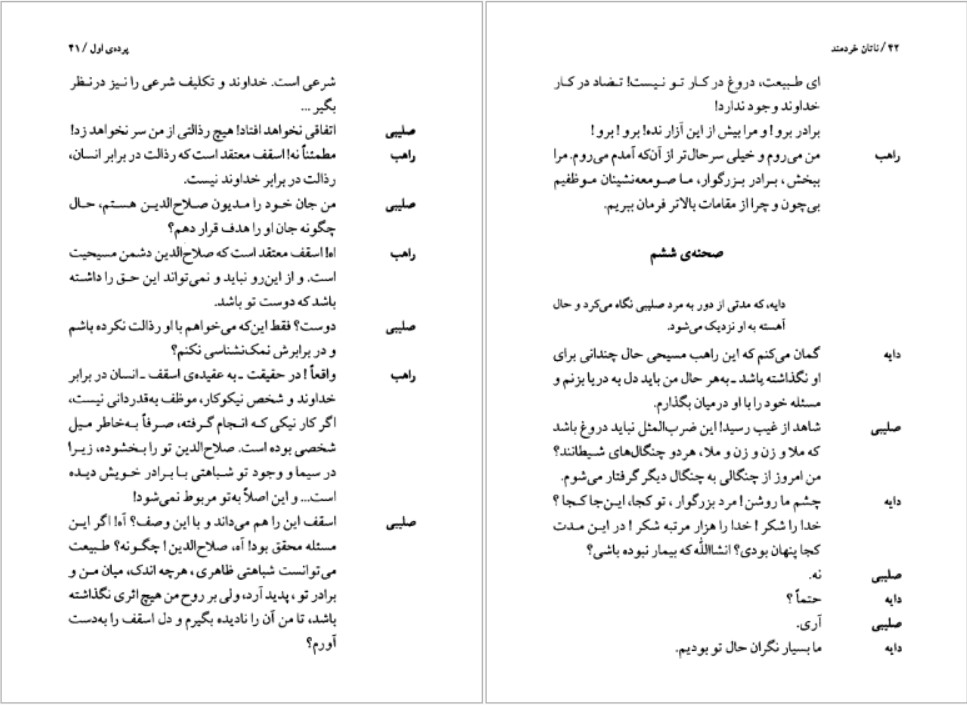 پرده‌ی اول / ۴۱
شرعی است. خداوند و تکلیف شرعی را نیز درنظر
بگیر ...
صلیبی اتفاقی نخواهد افتاد! هیچ رذالتی از من سر نخواهد زد!
راهب مطمئناً نه! اسقف معتقد است که رذالت در برابر انسان،
رذالت در برابر خداوند نیست.
صلیبی من جان خود را مدیون صلاح‌الدین هستم، حال
چگونه جان او را هدف قرار دهم؟
راهب اه! اسقف معتقد است که صلاح‌الدین دشمن مسیحیت
است. و از این‌رو نباید و نمی‌تواند این حق را داشته
باشد که دوست تو باشد.
صلیبی دوست؟ فقط این‌که می‌خواهم با او رذالت نکرده باشم
و در برابرش نمک‌نشناسی نکنم؟
راهب واقعاً! در حقیقت ـ به عقیده‌ی اسقف ـ انسان در برابر
خداوند و شخص نیکوکار، موظف به‌قدردانی نیست،
اگر کار نیکی که انجام گرفته، صرفاً به‌خاطر میل
شخصی بوده است. صلاح‌الدین تو را بخشوده، زیرا
در سیما و وجود تو شباهتی با برادر خویش دیده
است... و این اصلاً به‌تو مربوط نمی‌شود!
صلیبی اسقف این را هم می‌داند و با این وصف؟ آه! اگر این
مسئله محقق بود! آه، صلاح‌الدین! چگونه؟ طبیعت
می‌توانست شباهتی ظاهری، هرچه اندک، میان من و
برادر تو، پدید آرد، ولی بر روح من هیچ اثری نگذاشته
باشد، تا من آن را نادیده بگیرم و دل اسقف را به‌دست
آورم؟
۴۲ / ناتان خردمند
ای طبیعت، دروغ در کار تو نیست! تضاد در کار
خداوند وجود ندارد!
برادر برو! و مرا بیش از این آزار نده! برو! برو!
راهب من می‌روم و خیلی سرحال‌تر از آن‌که آمدم می‌روم. مرا
ببخش، برادر بزرگوار، ما صومعه‌نشینان موظفیم
بی‌چون و چرا از مقامات بالاتر فرمان ببریم.
صحنه‌ی ششم
دایه، که مدتی از دور به مرد صلیبی نگاه می‌کرد و حال
آهسته به او نزدیک می‌شود.
دایه گمان می‌کنم که این راهب مسیحی حال چندانی برای
او نگذاشته باشد ـ به‌هر حال من باید دل به دریا بزنم و
مسئله خود را با او درمیان بگذارم.
صلیبی شاهد از غیب رسید! این ضرب‌المثل نباید دروغ باشد
که ملا و زن و زن و ملا، هردو چنگال‌های شیطانند؟
من امروز از چنگالی به چنگال دیگر گرفتار می‌شوم.
دایه چشم ما روشن! مرد بزرگوار، تو کجا، این‌جا کجا؟
خدا را شکر! خدا را هزار مرتبه شکر! در این مدت
کجا پنهان بودی؟ انشاالله که بیمار نبوده باشی؟
صلیبی نه.
دایه حتماً؟
صلیبی آری.
دایه ما بسیار نگران حال تو بودیم.